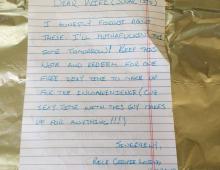 DEAR WIFEY (SUGAR TITS)
I HONESTLY FORGOT ABOUT
THESE. I'LL MUTHAFUCKIN
SOME TOMORROW! KEEP THIS
NOTE AND REDEEM FOR ONE
FREE SEXY TIME TO MAKE UP
FOR THE INCONVENIENCE (CUZ
SEXY TIME WITH THIS GUY MAKES
UP FOR ANYTHING!!!)
SINCERELY,